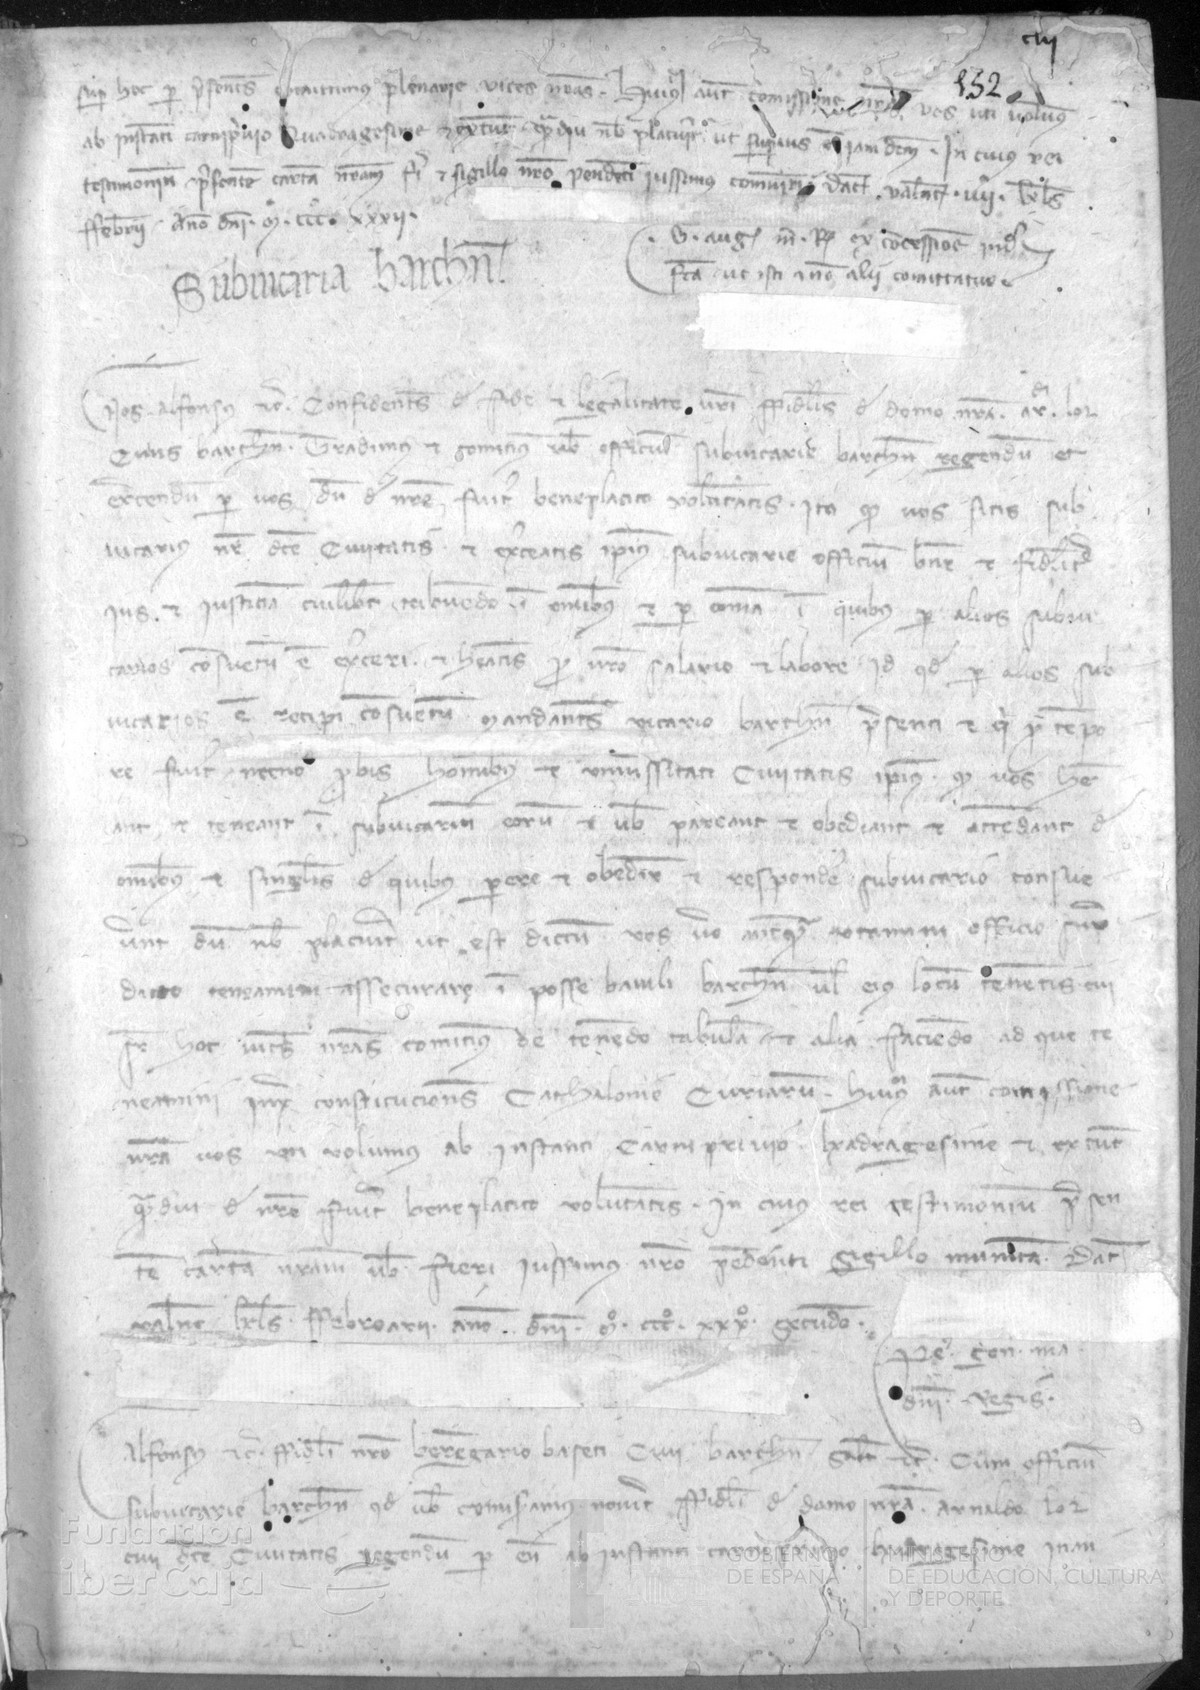 clij
152
sup hoc per p̃sentẽ comittimus plenarie vices nr̃as. Huiusmodi aut comissione nr̃a vos uti volumus
ab instanti carnipriuio Quadragesime et extunc quamdiu nob placuerit ut superius est iam dcm. In cuius rei
testimonium p̃sentẽ cartã nr̃am fi et sigillo nr̃o pendenti iussimus comuniri. dat. valenc. viij. kls
ffebrii Año dñi. M. ccc. xxxii.
G. aug. m. R. ex concessione inde
fc̃a ut isti et nõ alij comittatur
Subuicaria barchñ.
Nos Alfonsus etc. Confidentes de fide et legalitate vr̃i ffidelis de domo nr̃a. Ar. lor
Ciuis barchñ. Tradimus et comitimus vob officiũ subuicarie barchñ regendũ et
exercendũ per vos dũ de nr̃e fuerit beneplacito voluntatis. Ita quod vos sitis sub
uicarius nr̃ dc̃e Ciuitatis et exerceatis ip̃ius subuicarie officiũ bñe et fidelit
ius et iusticiã cuilibet tribuendo ĩ omibus et per omĩa ĩ quibus per alios subui
carios consuetũ ẽ exerceri et heatis pro vr̃o salario et labore id qd per alios sub
uicarios ẽ recipi consuetũ Mandantes vicario barchñ p̃senti et qi pro tempo
re fuerit necnõ p̃bis hominibus et vniuersitati Ciuitatis ip̃ius. qd vos he
ant et teneant ĩ subuicariũ eorũ et vob pareant et obediant et attendant de
omibus et singulis de quibus parere et obedire et respondere subuicario consue
uerunt dũ nob placuerit ut est dictũ vos vo antequam utamini officio sup
dicto teneamini assecurare ĩ posse baiuli barchñ ul eius locũ tenentis cui
sr hoc vices nr̃as comitimus de tenendo tabulã et alia faciendo ad que te
neamini iuxta constituciones Cathalonie Curiarũ. huiusmodi aut comissione
nr̃a vos uti volumus ab instanti carnipriuio Quadragesime et extunc
quamdiu de nr̃e fuerit beneplacito voluntatis. In cuius rei testimoniũ p̃sen
tẽ cartã nr̃am vob fieri iussimus nr̃o pendenti sigillo munitã. Dat
valenc. kls. ffebroarii. año. dñi. M. ccc. xxx. secundo.
Pe. gon. ma
dñi. Regis.
Alfonsus etc. ffideli nr̃o berengario baseti Ciui barchñ salt etc. Cum officiũ
subuicarie barchñ qd vob comisimus nouit ffideli de domo nr̃a. arnaldo lor
ciui dc̃e Ciuitatis regendũ per eũ ab instanti carnipriuio Quadragesime inan
Fundación
iberCaja
GOBIERNO
DE ESPAÑA
MINISTERIO
DE EDUCACIÓN, CULTURA
Y DEPORTE